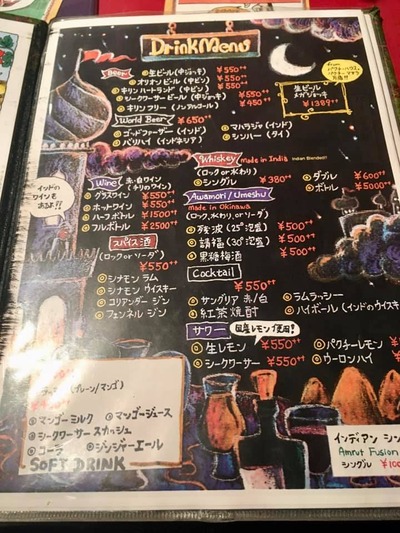 Drink Menu
Beer
◎生ビール(中ジョッキ) ¥550++
◎オリオンビール (中ビン) ¥550++
◎キリン ハートランド (中ビン) ¥550++
◎シークワーサービール (中ジョッキ) ¥550++
◎キリン フリー (ノンアルコール) ¥450++
生ビール
メガジョッキ
¥1389++
World Beer ¥650++
◎ゴッドファーザー (インド) ◎マハラジャ (インド)
◎バリハイ (インドネシア) ◎シンハー (タイ)
インドの
ワインも
あるよ!!
Whiskey made in India Indian Blended!!
(ロック or 水わり)
◎シングル ¥380++ ◎ダブル ¥600++
◎ボトル ¥5000++
Wine 赤・白ワイン
(チリのワイン)
◎グラスワイン ¥550++
◎ホットワイン ¥550++
◎ハーフボトル ¥1500++
◎フルボトル ¥2500++
Awamori/Umeshu
made in Okinawa
(ロック、水わり、orソーダ)
◎残波 (25°泡盛) ¥500++
◎請福 (30°泡盛) ¥500++
◎黒糖梅酒 ¥500++
スパイス酒
(ロック or ソーダ)
¥550++
◎シナモン ラム
◎シナモン ウイスキー
◎コリアンダー ジン
◎フェンネル ジン
Cocktail
¥550++
◎サングリア 赤/白 ◎ラムラッシー
◎紅茶焼酎 ◎ハイボール (インドのウイスキ
サワー 国産レモン使用!
◎生レモン ¥550++ ◎パクチーレモン ¥
◎シークワーサー ¥550++ ◎ウーロンハイ ¥
(プレーン/マンゴ)
◎マンゴーミルク ◎マンゴージュース
◎シークワーサー スカッシュ
◎コーラ ◎ジンジャーエール
SOFT DRINK
インディアン シン
Amrut Fusion
シングル ¥100